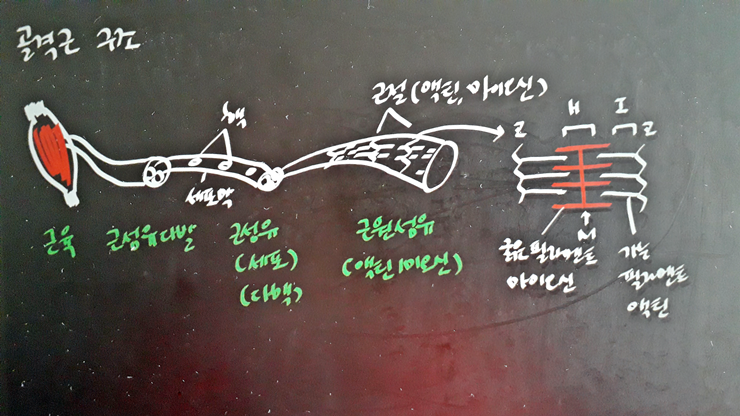 골격근 구조
핵
세포막
근절(액틴, 마이오신)
H
I
Z
Z
M
굵은 필라멘트
마이오신
가는
필라멘트
액틴
근육
근섬유다발
근섬유
(세포)
(다핵)
근원섬유
(액틴/미오신)